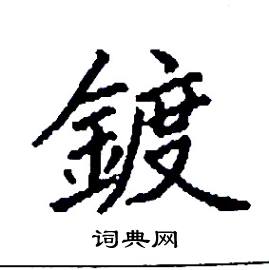 鍍
词典网